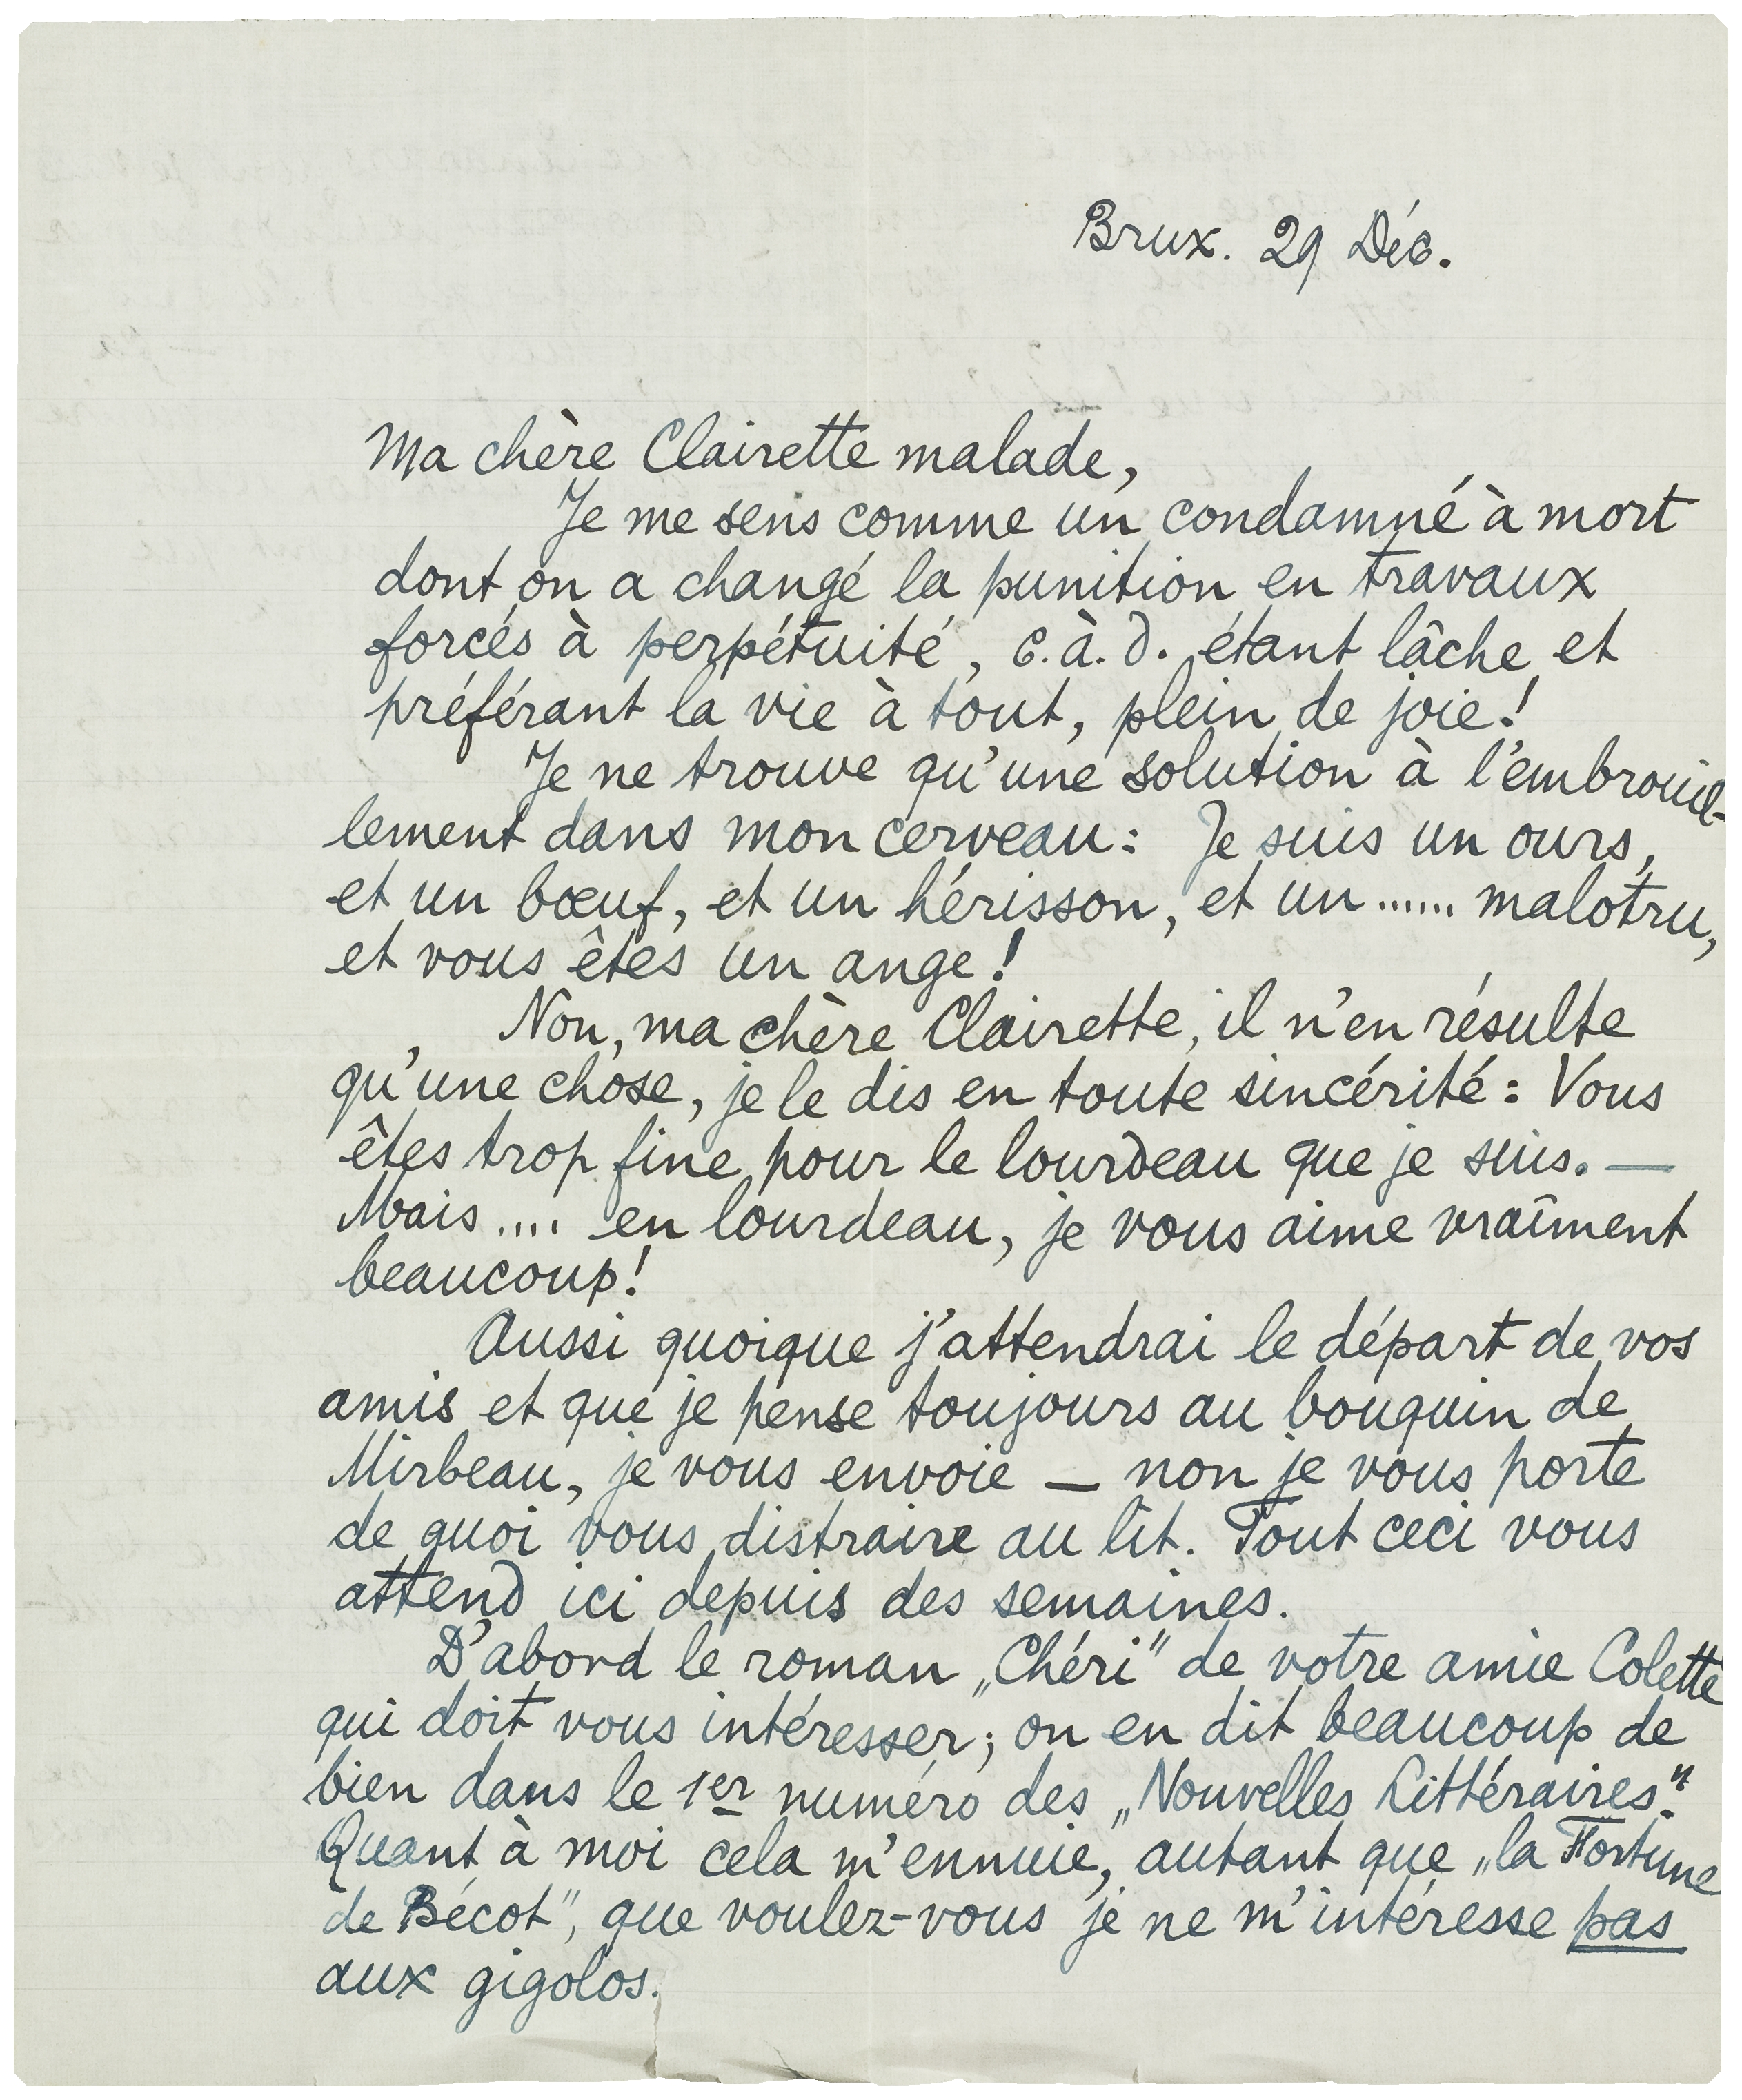 Brux. 29 Déc.
Ma chère Clairette malade,
Je me sens comme un condamné à mort
dont on a changé la punition en travaux
forcés à perpétuité, c.à.d. étant lâche et
préférant la vie à tout, plein de joie!
Je ne trouve qu'une solution à l'embrouil-
lement dans mon cerveau: Je suis un ours,
et un bœuf, et un hérisson, et un ...... malotru,
et vous êtes un ange!
Non, ma chère Clairette, il n'en résulte
qu'une chose, je le dis en toute sincérité: Vous
êtes trop fine pour le lourdeau que je suis. —
Mais .... en lourdeau, je vous aime vraîment
beaucoup!
Aussi quoique j'attendrai le départ de vos
amis et que je pense toujours au bouquin de
Mirbeau, je vous envoie — non je vous porte
de quoi vous distraire au lit. Tout ceci vous
attend ici depuis des semaines.
D'abord le roman „Chéri" de votre amie Colette
qui doit vous intéresser; on en dit beaucoup de
bien dans le 1er numéro des „Nouvelles Littéraires".
Quant à moi cela m'ennuie, autant que „la Fortune
de Bécot", que voulez-vous je ne m'intéresse pas
aux gigolos.